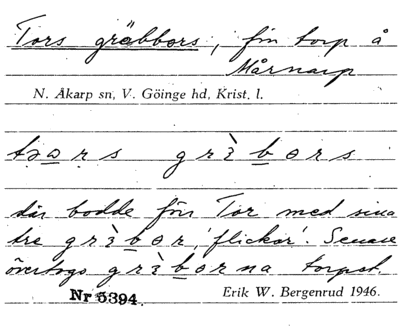 Tors gräbbors, fin torp å
Mårnarp
N. Åkarp sn, V. Göinge hd, Krist. l.
tɔɑrs grɛ̀bɵrs
där bodde förr Tor med sina
tre grɛ̀bɵr, 'flickor'. Senare
övertogs grɛ̀bɵrna torpet.
Nr 5394
Erik W. Bergenrud 1946.